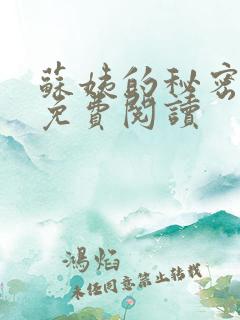 蘇姨的秘密
免費閱讀
鴻焰
未经同意禁止转载